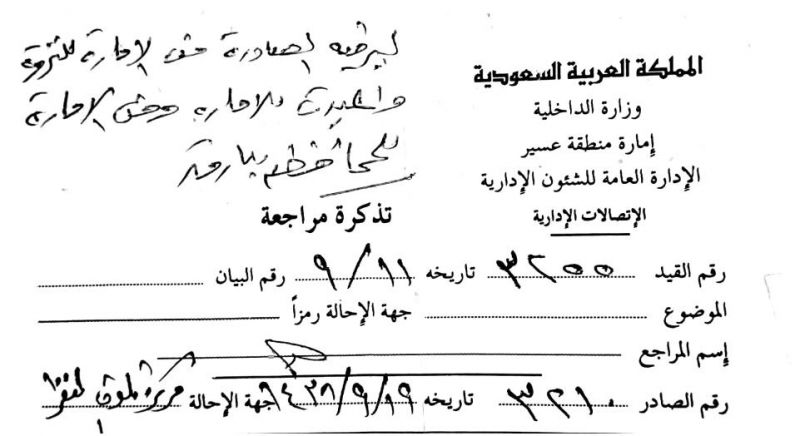 المملكة العربية السعودية
وزارة الداخلية
إمارة منطقة عسير
الإدارة العامة للشئون الإدارية
الإتصالات الإدارية
لبرقيه الصادرة من الإمارة للثروة
والمعيدت للاماره ومن الإمارة
للمحافظه ببارق
تذكرة مراجعة
رقم القيد ٣٢٥٥ تاريخه ٩/١١ رقم البيان
الموضوع جهة الإحالة رمزاً
إسم المراجع
رقم الصادر ٣٢١٠ تاريخه ١٤٣٨/٩/١٩ جهة الإحالة